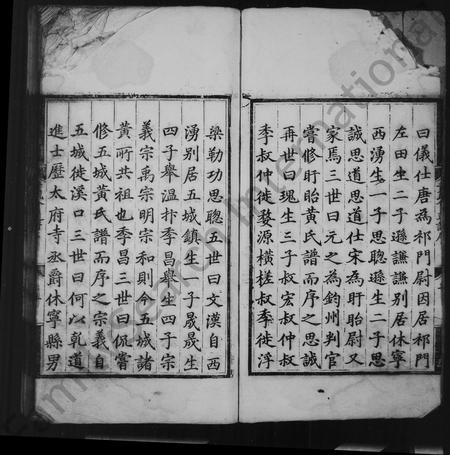 曰儀仕唐為祁門尉因居祁門
左田生二子遜謙謙別居休寧
西湧生一子思聰遜生二子思
誠思道思道仕宋為盱眙尉又
家焉三世曰元之為鈞州判官
嘗修盱眙黃氏譜而序之思誠
再世曰瑰生三子叔宏叔仲叔
季叔仲徙婺源橫槎叔季徙浮
梁勒功思聰五世曰文漢自西
湧別居五城鎮生一子晟晟生
四子舉溫抃季昌舉生四子宗
義宗禹宗明宗和則今五城諸
黃所共祖也季昌三世曰侃嘗
修五城黃氏譜而序之宗義自
五城徙漢口三世曰何以乾道
進士歷太府寺丞爵休寧縣男
FamilySearch International